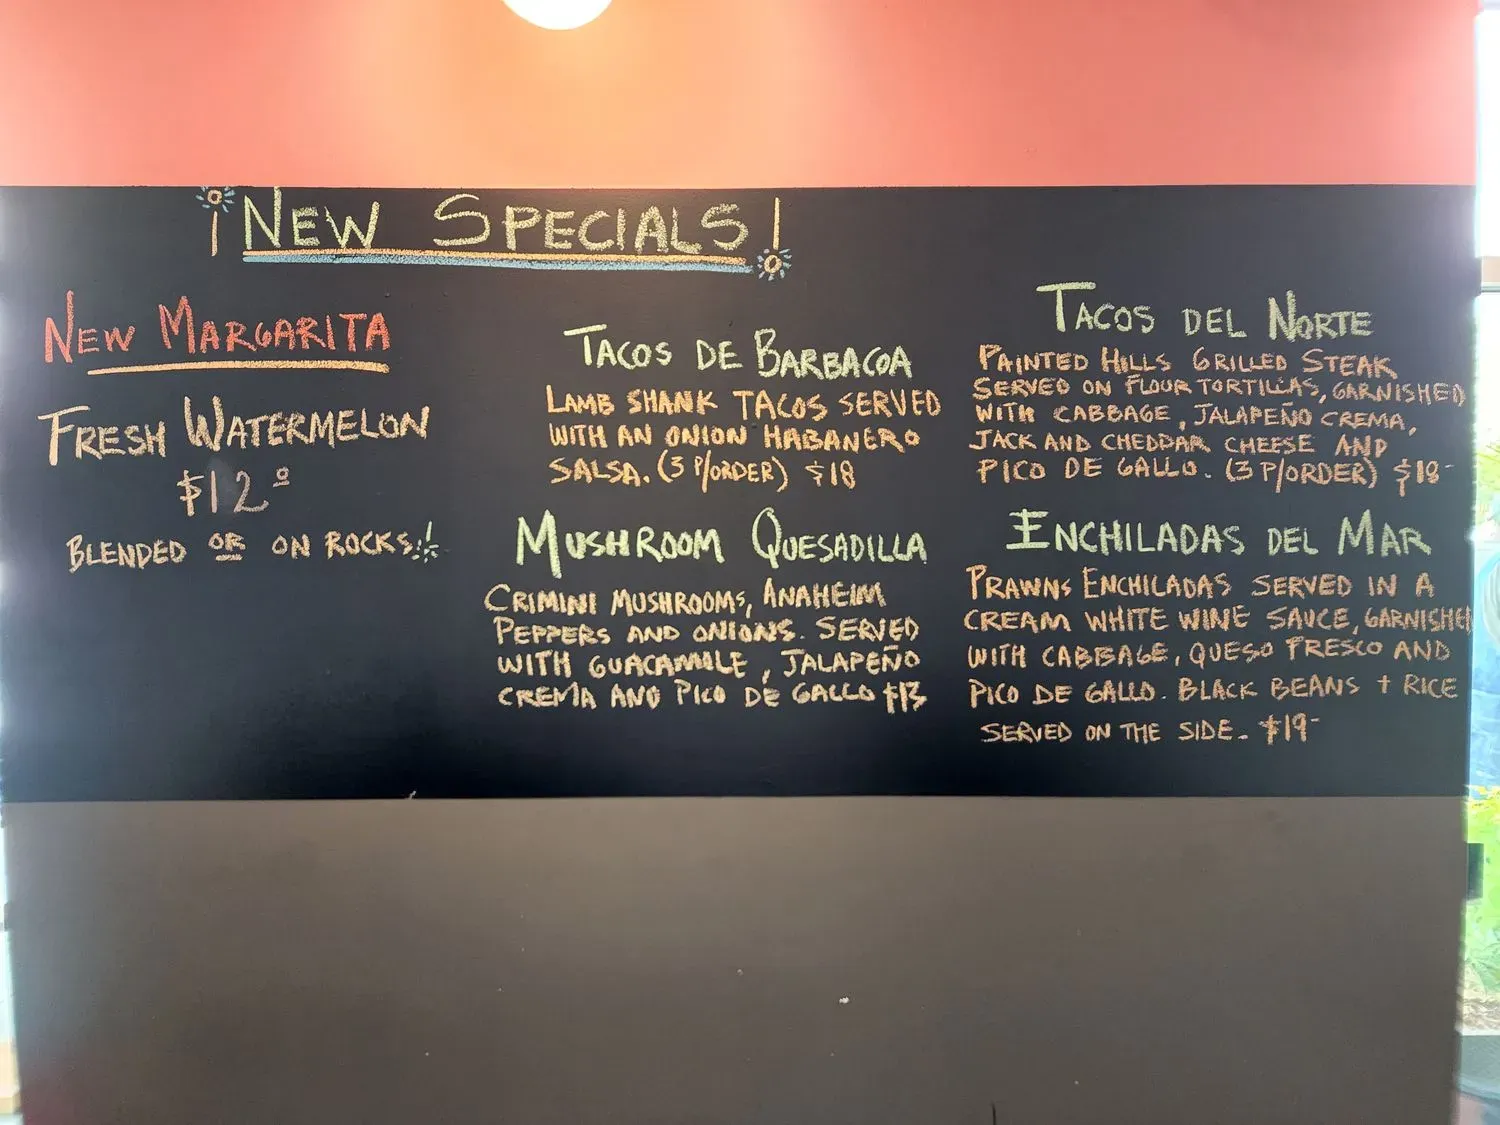 ¡NEW SPECIALS!
NEW MARGARITA
FRESH WATERMELON
$12º
BLENDED OR ON ROCKS!
TACOS DE BARBACOA
LAMB SHANK TACOS SERVED
WITH AN ONION HABANERO
SALSA. (3 P/ORDER) $18
MUSHROOM QUESADILLA
CRIMINI MUSHROOMS, ANAHEIM
PEPPERS AND ONIONS. SERVED
WITH GUACAMOLE, JALAPEÑO
CREMA AND PICO DE GALLO $13
TACOS DEL NORTE
PAINTED HILLS GRILLED STEAK
SERVED ON FLOUR TORTILLAS, GARNISHED
WITH CABBAGE, JALAPEÑO CREMA,
JACK AND CHEDDAR CHEESE AND
PICO DE GALLO. (3 P/ORDER) $18-
ENCHILADAS DEL MAR
PRAWNS ENCHILADAS SERVED IN A
CREAM WHITE WINE SAUCE, GARNISHED
WITH CABBAGE, QUESO FRESCO AND
PICO DE GALLO. BLACK BEANS + RICE
SERVED ON THE SIDE. $19-